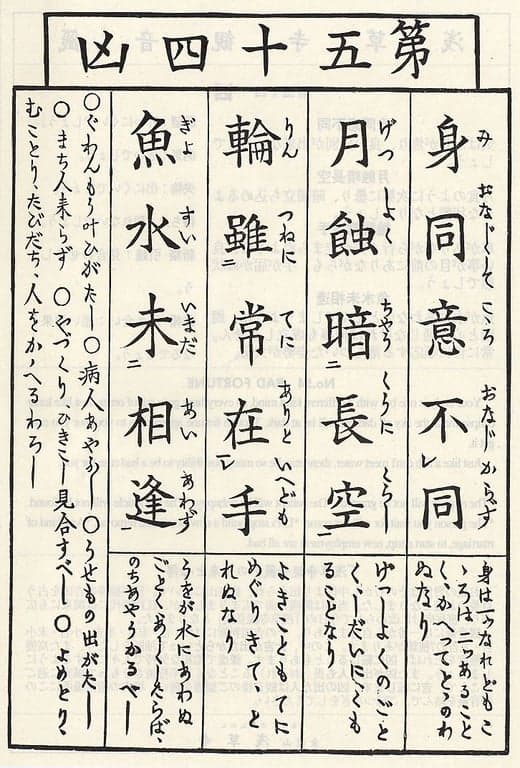 第五十四凶
身同意不同
み おなじくして こころ おなじからず
身は一つなれどもこ
ゝろは二つあること
く、かへてとゝのわ
ぬなり
月蝕暗長空
げつ しよく ちやう くうに くらし
げつしよくのごと
く、だいにくも
ることなり
輪雖常在手
りん つねに てに ありと いへども
よきこともてに
めぐりきて、と
れぬなり
魚水未相逢
ぎよ すい いまだ あい あわず
うをが水にあわぬ
ごとくあく
のちあやうかるべし
〇ぐわんもう叶ひがたし 〇病人あやうし 〇うせもの出がたし
〇まち人来らず 〇やづくりひきこし見合すべし 〇よめとり、
むことり、たびだち、人をかゝへるわろし